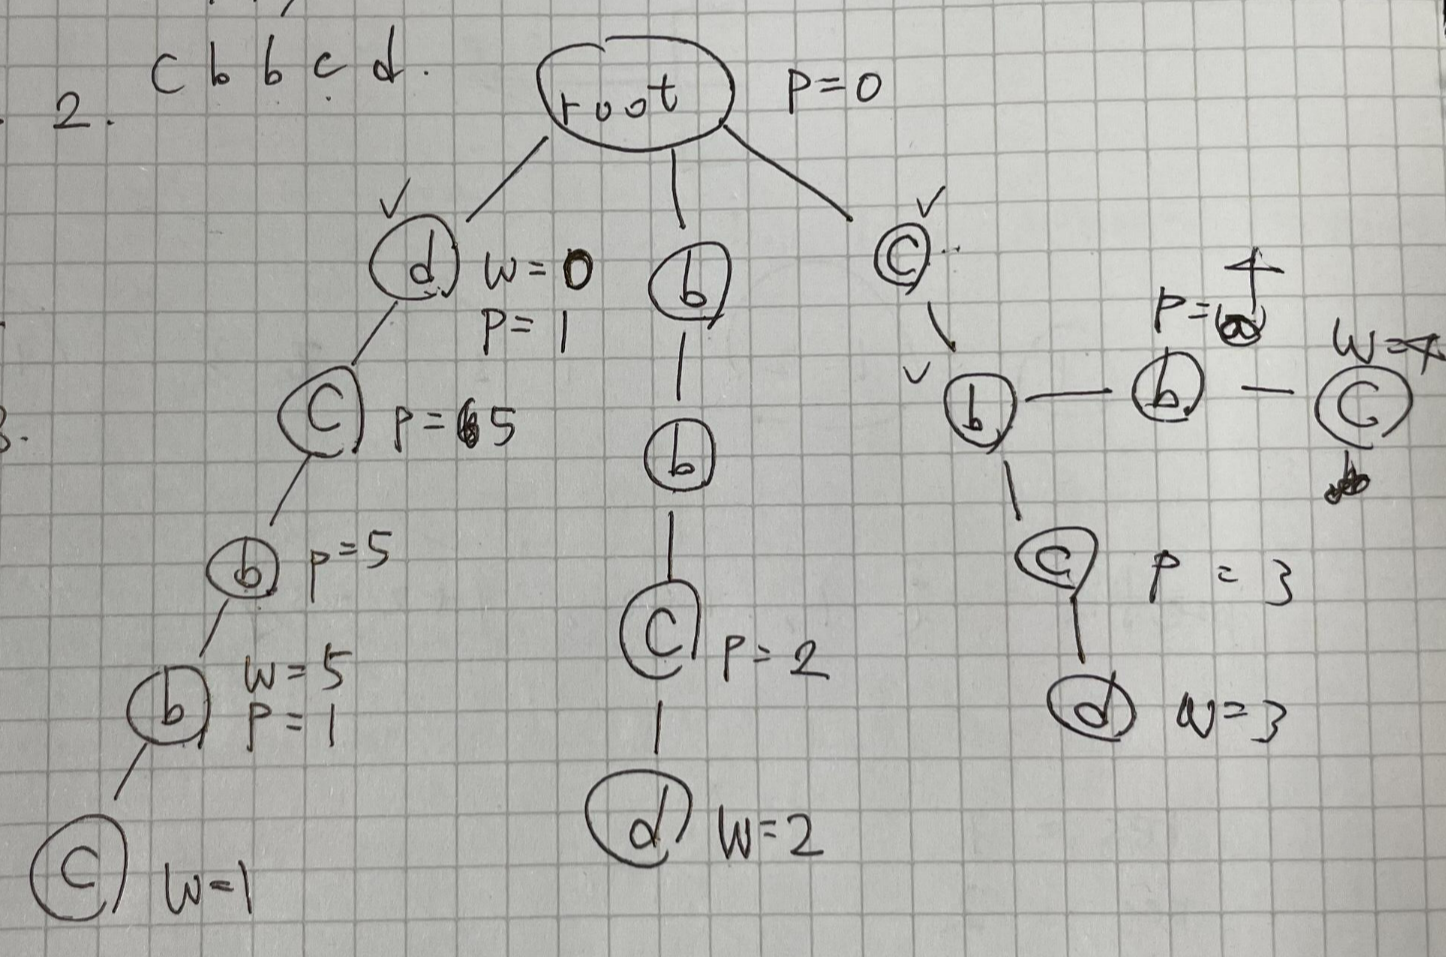 c b b c d.
2.
root P=0
d W=0
P=1
b
c
P=4
W=4
c P=5
b
b
b
c
b P=5
c P=3
b W=5
P=1
c P=2
d W=3
c W=1
d W=2